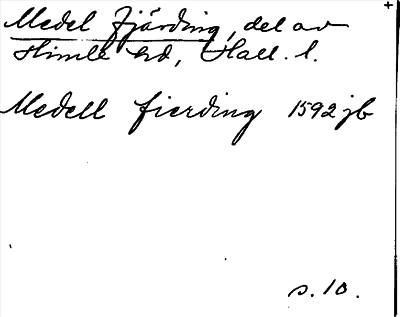 Medel fjärding, del av
Himle hd, Hall. l.
Medell fierding 1592 jb
s. 10.